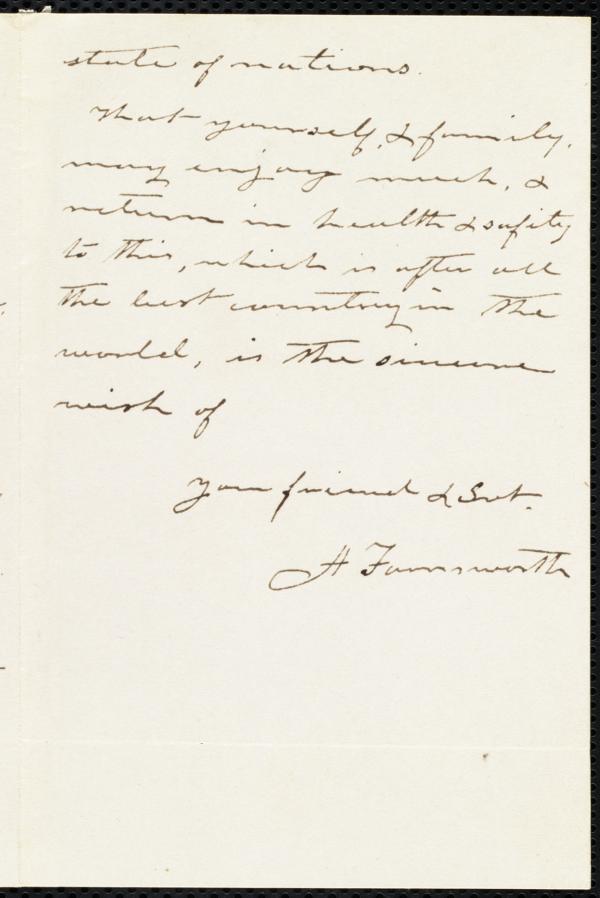 state of nations.
That yourself, & family,
may enjoy much, &
return in health & safity
to this, which is after all
the best country in the
world, is the sincere
wish of
your friend & Svt.
H Farnsworth